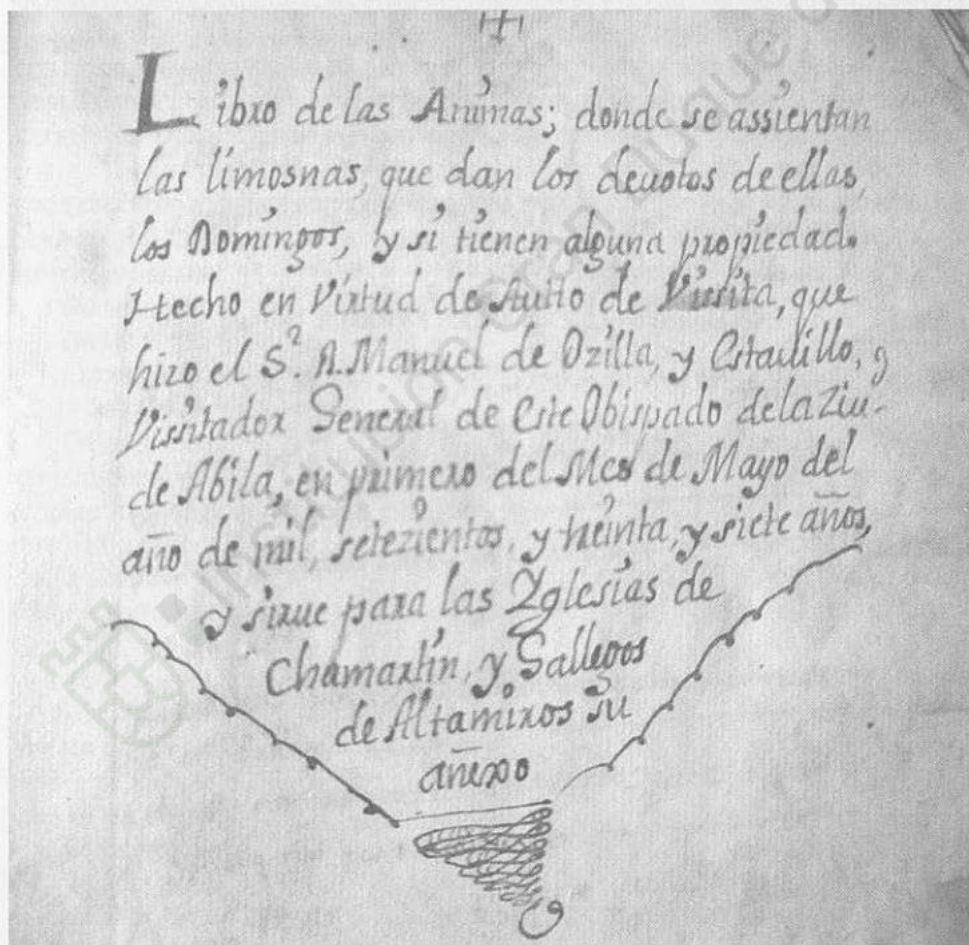 Libro de las Animas; donde se assientan
las limosnas, que dan los deuotos de ellas,
los Domingos, y si tienen alguna propiedad.
Hecho en Virtud de Autto de Vissita, que
hizo el S.r D. Manuel de Ozilla, y Estadillo,
Vissitador General de este Obispado de la Ziu.
de Abila, en primero del Mes de Mayo del
año de mil, setezientos, y treinta, y siete años,
y sirue para las Yglesias de
Chamartin, y Gallegos
de Altamiros su
añexo
Institución Gran Duque d